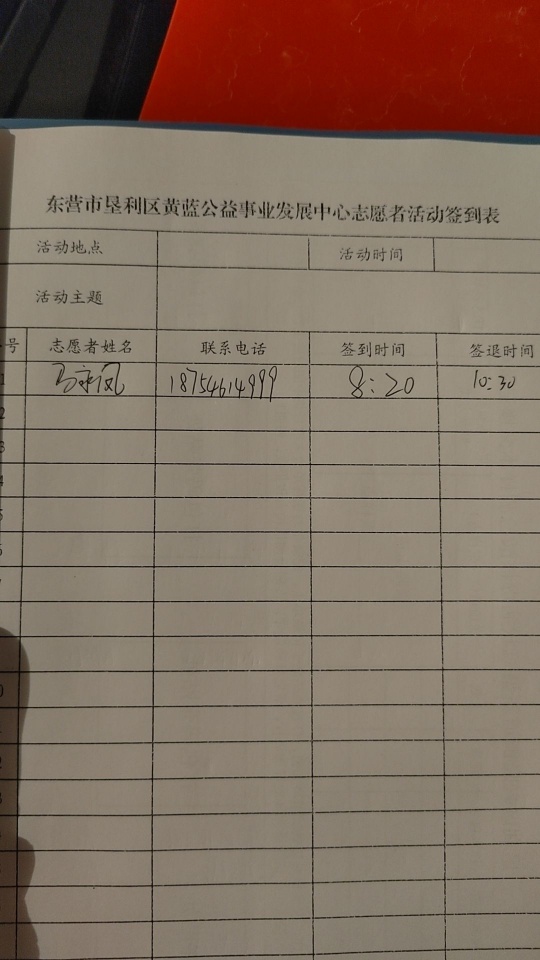 东营市垦利区黄蓝公益事业发展中心志愿者活动签到表
活动地点 活动时间
活动主题
号 志愿者姓名 联系电话 签到时间 签退时间
1 马永凤 18754614999 8:20 10:30
2
3
4
5
6
7
0
2
3